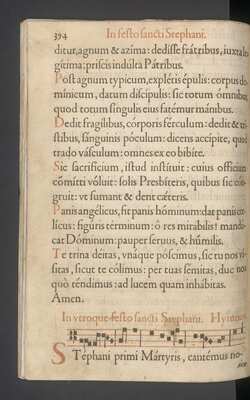 394 In festo sancti Stephani.
ditur, agnum & azima: dedisse frátribus, iuxta le
gítima; priscis indúlta Pátribus.
Post agnum typicum, explétis épulis: corpus do
mínicum, datum discípulis: sic totum ómnibus,
quod totum síngulis eius fatémur mánibus.
Dedit fragílibus, córporis férculum: dedit & tri
stibus, sánguinis póculum: dicens accípite, quod
trado vásculum: omnes ex eo bíbite.
Sic sacrifícium, istud instítuit: cuius offícium
cōmítti vóluit: solis Presbíteris, quibus sic cō
gruit: vt sumant & dent cæteris.
Panis angélicus, fit panis hóminum: dat panis cæ
licus: figúris términum: ô res mirábilis! mandú-
cat Dóminum: pauper séruus, & húmilis.
Te trina déitas, vnáque póscimus, sic tu nos ví-
sitas, sicut te cólimus: per tuas sémitas, duc nos
quò téndimus: ad lucem quam inhábitas.
Amen.
In vtroque festo sancti Stephani. Hymnus.
STéphani primi Mártyris, cantémus no-